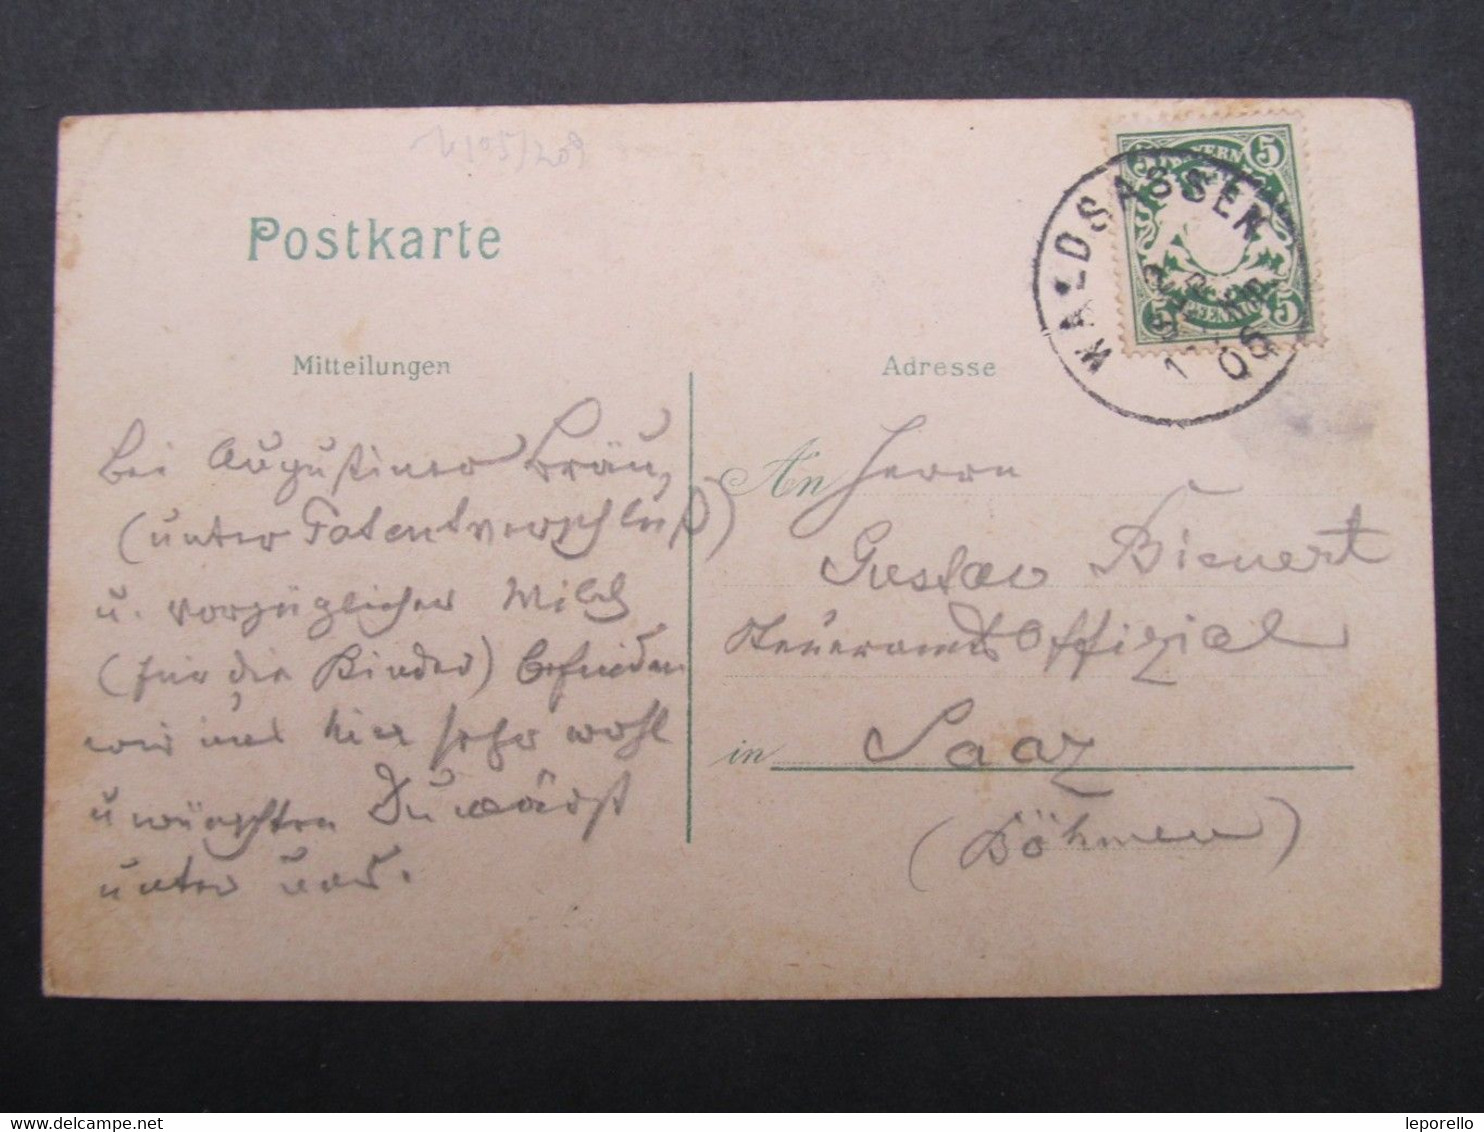 4105/209
Postkarte
Mitteilungen
Adresse
BAYERN
5 5
5 PFENNIG 5
WALDSASSEN
06
Bei Augustiner Bräu,
(unter Patentverschluß)
u. vorzüglicher Milch
(für die Kinder) befinden
wir uns hier sehr wohl
u wünschten Du wärst
unter uns.
An Herrn
Gustav Bienert
Steueramts Offizial
in Saaz
(Böhmen)
leporello
delcampe.net